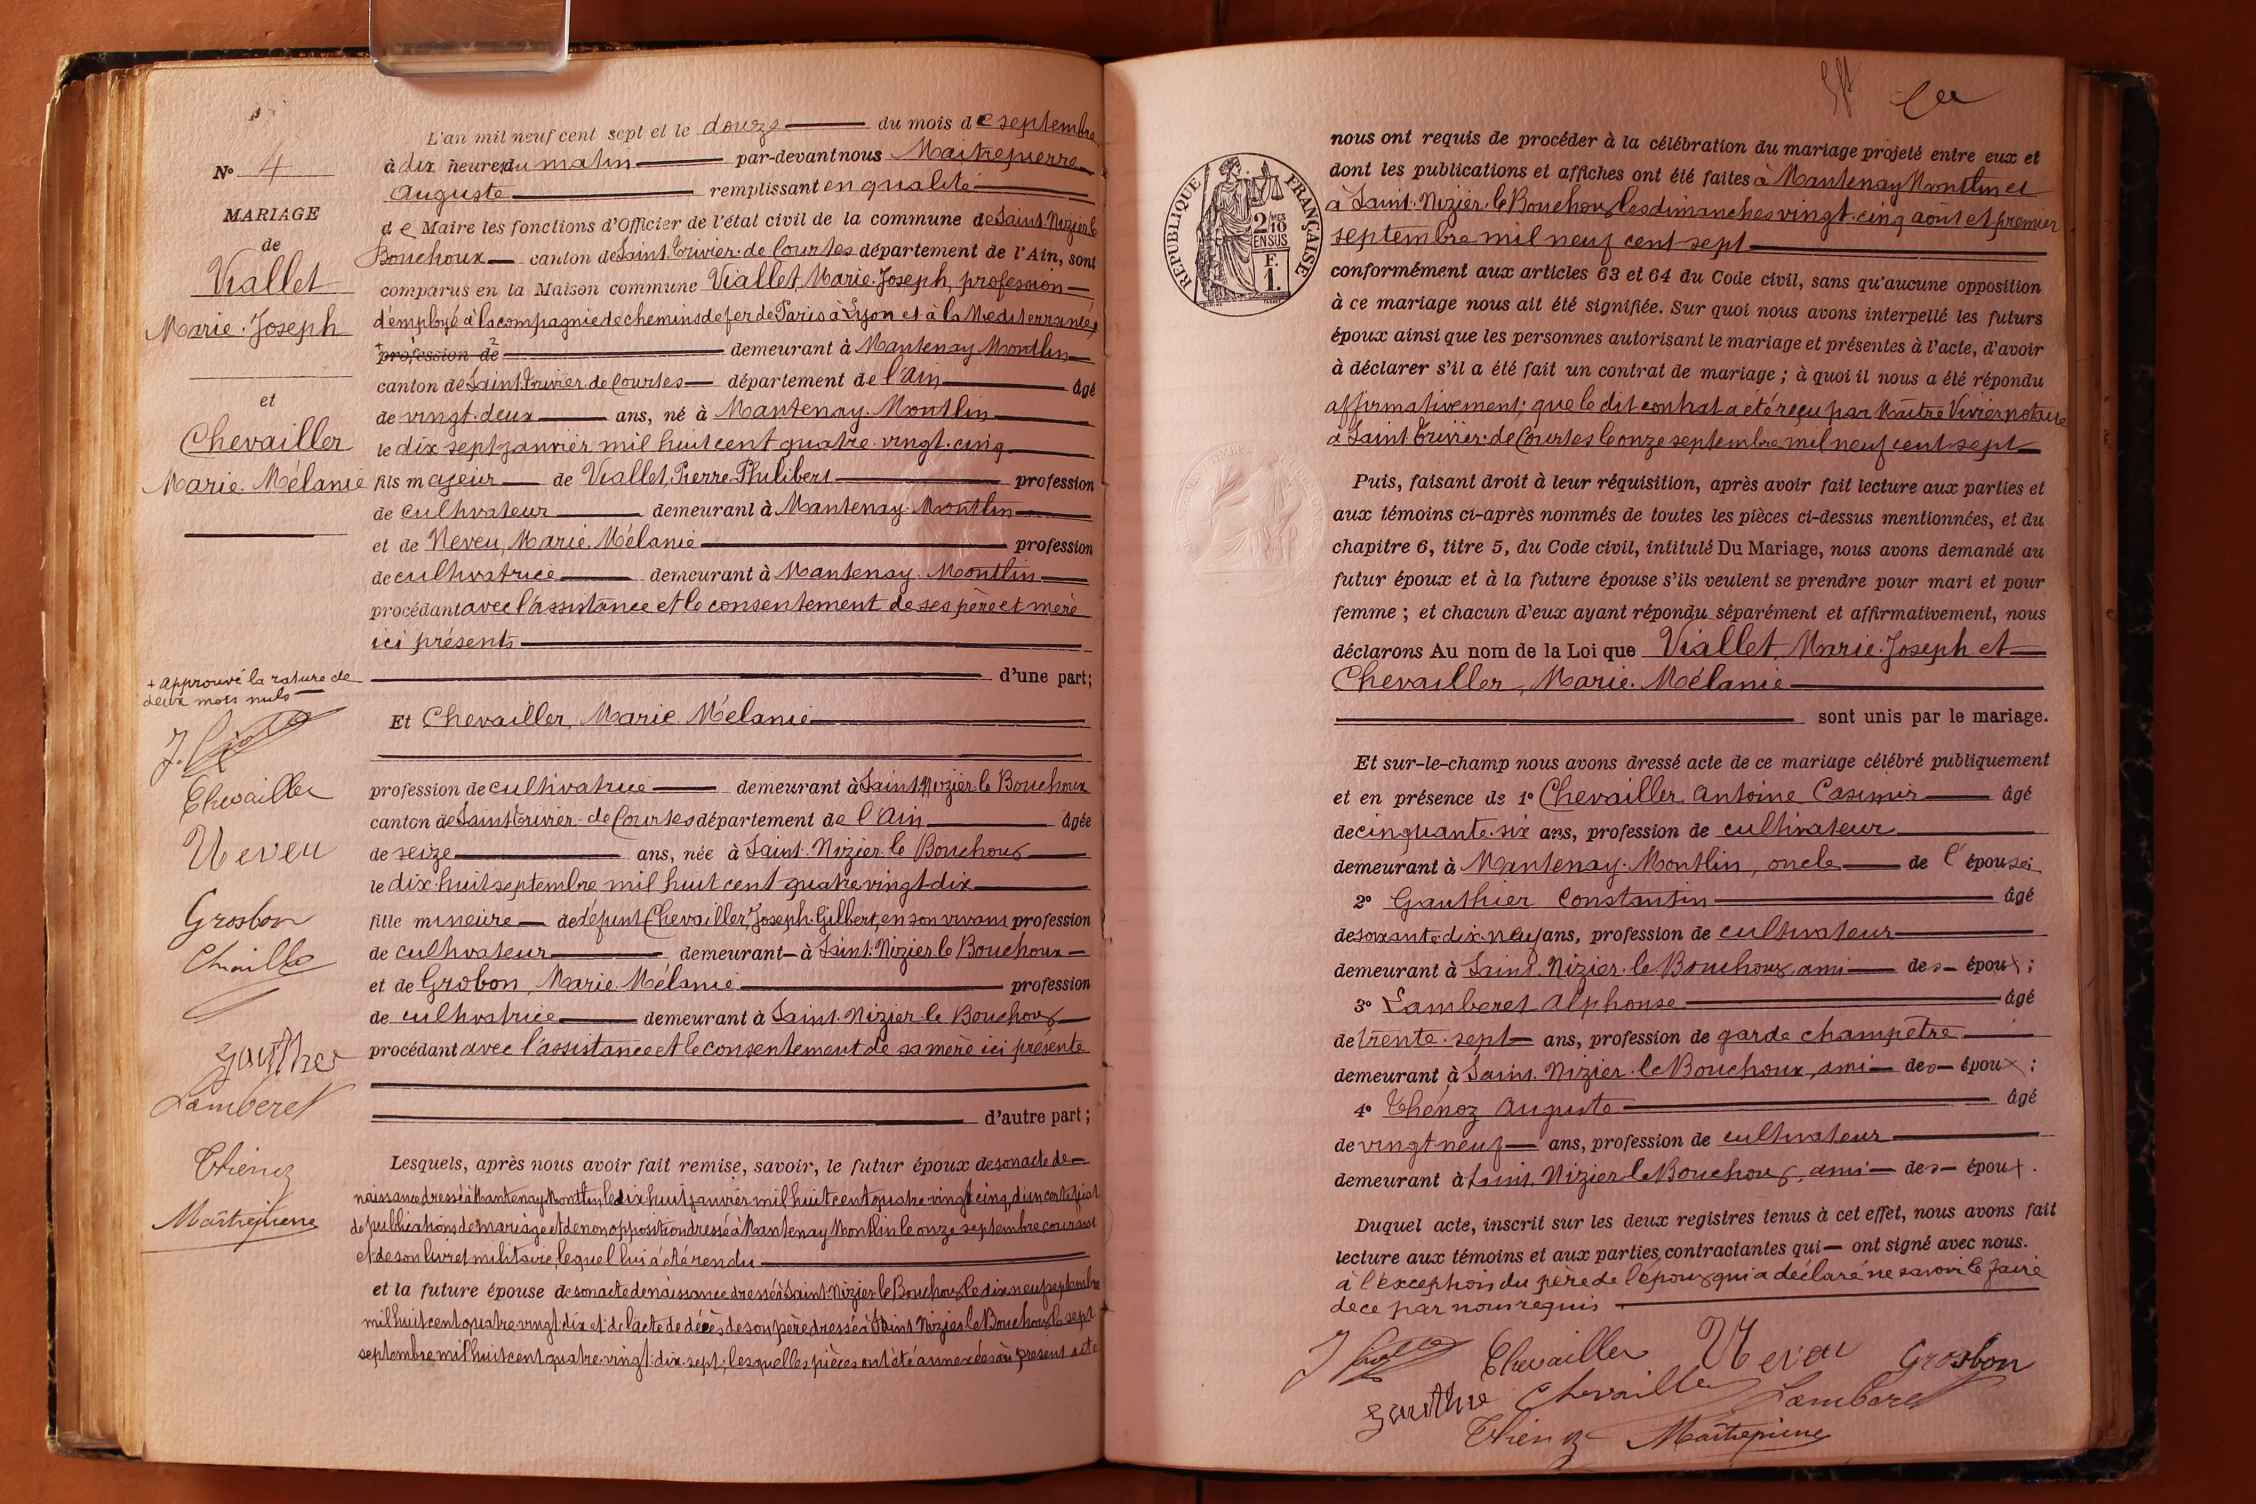 N° 4
MARIAGE
de
Viallet
Marie-Joseph
et
Chevailler
Marie-Mélanie
+ approuvé la rature de
deux mots nuls
Chevailler
Neveu
Grosbon
Chevailler
Gauthier
Lamberet
Thénoz
Maîtrepierre
L'an mil neuf cent sept et le douze du mois de septembre
à dix heures du matin par-devant nous Maitrepierre
Auguste remplissant en qualité
de Maire les fonctions d'Officier de l'état civil de la commune de Saint-Nizier-le
Bouchoux canton de Saint-Trivier-de-Courtes département de l'Ain, sont
comparus en la Maison commune Viallet, Marie-Joseph, profession
d'employé à la compagnie de chemins de fer de Paris à Lyon et à la Méditerranée,
profession de demeurant à Mantenay-Montlin
canton de Saint-Trivier-de-Courtes département de l'Ain âgé
de vingt-deux ans, né à Mantenay-Montlin
le dix sept janvier mil huit cent quatre-vingt-cinq
fils majeur de Viallet, Pierre-Philibert profession
de cultivateur demeurant à Mantenay-Montlin
et de Neveu, Marie-Mélanie profession
de cultivatrice demeurant à Mantenay-Montlin
procédant avec l'assistance et le consentement de ses père et mère
ici présents
d'une part;
Et Chevailler, Marie-Mélanie
profession de cultivatrice demeurant à Saint-Nizier-le-Bouchoux
canton de Saint-Trivier-de-Courtes département de l'Ain âgée
de seize ans, née à Saint-Nizier-le-Bouchoux
le dix-huit septembre mil huit cent quatre vingt-dix
fille mineure de défunt Chevailler, Joseph-Gilbert, en son vivant profession
de cultivateur demeurant à Saint-Nizier-le-Bouchoux
et de Grobon, Marie-Mélanie profession
de cultivatrice demeurant à Saint-Nizier-le-Bouchoux
procédant avec l'assistance et le consentement de sa mère ici présente
d'autre part;
Lesquels, après nous avoir fait remise, savoir, le futur époux de son acte de
naissance dressé à Mantenay-Montlin, le dix huit janvier mil huit cent quatre-vingt cinq, d'un certificat
de publications de mariage et de non opposition dressé à Mantenay-Montlin le onze septembre courant
et de son livret militaire, lequel lui a été rendu
et la future épouse de son acte de naissance dressé à Saint-Nizier-le-Bouchoux le dix neuf septembre
mil huit cent quatre vingt dix et de l'acte de décès de son père dressé à Saint-Nizier-le-Bouchoux le sept
septembre mil huit cent quatre-vingt-dix-sept; lesquelles pièces ont été annexées au présent acte
REPUBLIQUE FRANÇAISE
2/10
EN SUS
F.
1.
nous ont requis de procéder à la célébration du mariage projeté entre eux et
dont les publications et affiches ont été faites à Mantenay Montlin et
à Saint-Nizier-le-Bouchoux les dimanches vingt-cinq août et premier
septembre mil neuf cent sept
conformément aux articles 63 et 64 du Code civil, sans qu'aucune opposition
à ce mariage nous ait été signifiée. Sur quoi nous avons interpellé les futurs
époux ainsi que les personnes autorisant le mariage et présentes à l'acte, d'avoir
à déclarer s'il a été fait un contrat de mariage; à quoi il nous a été répondu
affirmativement; que le dit contrat a été reçu par Maître Vivier notaire
à Saint-Trivier-de-Courtes le onze septembre mil neuf cent sept
Puis, faisant droit à leur réquisition, après avoir fait lecture aux parties et
aux témoins ci-après nommés de toutes les pièces ci-dessus mentionnées, et du
chapitre 6, titre 5, du Code civil, intitulé Du Mariage, nous avons demandé au
futur époux et à la future épouse s'ils veulent se prendre pour mari et pour
femme; et chacun d'eux ayant répondu séparément et affirmativement, nous
déclarons Au nom de la Loi que Viallet, Marie-Joseph et
Chevailler, Marie-Mélanie
sont unis par le mariage.
Et sur-le-champ nous avons dressé acte de ce mariage célébré publiquement
et en présence de 1° Chevailler Antoine Casimir âgé
de cinquante-six ans, profession de cultivateur
demeurant à Mantenay-Montlin, oncle de l'épouse;
2° Gauthier Constantin âgé
de soixante-dix-neuf ans, profession de cultivateur
demeurant à Saint-Nizier-le-Bouchoux, ami des époux;
3° Lamberet Alphonse âgé
de trente-sept ans, profession de garde champêtre
demeurant à Saint-Nizier-le-Bouchoux, ami des époux;
4° Thénoz Auguste âgé
de vingt neuf ans, profession de cultivateur
demeurant à Saint-Nizier-le-Bouchoux, ami des époux.
Duquel acte, inscrit sur les deux registres tenus à cet effet, nous avons fait
lecture aux témoins et aux parties contractantes qui ont signé avec nous.
à l'exception du père de l'époux qui a déclaré ne savoir le faire
de ce par nous requis
Chevailler Neveu Grosbon
Gauthier Chevailler Lamberet
Thénoz Maîtrepierre